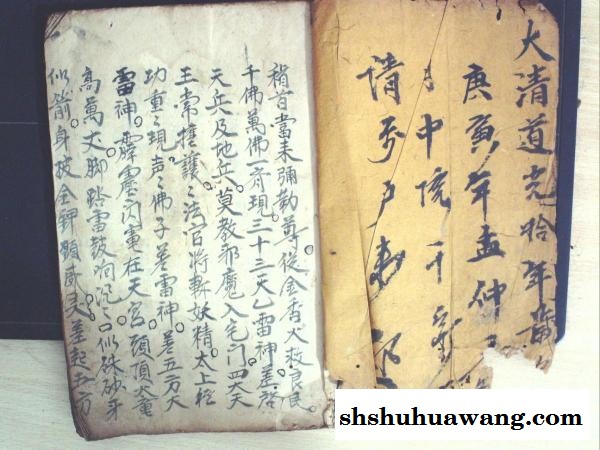 大清道光拾年歲
庚寅年孟仲
月中院
請
稽首當來彌勒尊從金香火救良民
千佛萬佛一齊現三十三天乙雷神差啓
天兵及地兵莫教邪魔入宅門四大天
王常擁護護法官將斬妖精太上
功重重現声声佛子差雷神差五方大
雷神霹靂閃電在天宮頭頂火輪
高萬丈脚踏雷鼓响沉沉口似硃砂牙
似箭身披金鉀顯威灵差起五方
shshuhuawang.com